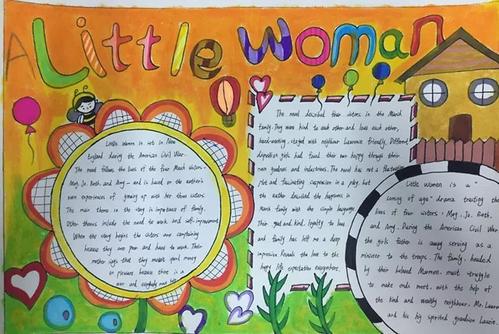 A Little Woman
Little Women is set in New
England during the American Civil War.
The novel follows the lives of the four March sisters -
Meg, Jo, Beth, and Amy - and is based on the author's
own experiences of growing up with her three sisters.
The main theme is the very is importance of family.
Other themes include the need to work and self-improvement.
When the story begins the sisters are complaining
because they are poor and have to work. Their
mother says that they mustn't spend money
on pleasure because there is a
war and everybody must
The novel described four sisters in the March
family. They were kind to each other and love each other,
hard-working, stayed with neighbor Laurence friendly. Different
disposition girls had found their own happy through their
own goodness and industrious. The novel has not a
plot and fascinating suspension in a play, but
the author described the happiness in
March family with the simple language.
Their good and kind, loyalty to love
and family has left me a deep
impression. Reveals the love to the
happy life expectation everywhere.
Little women is a "
coming of age" drama treating the
lives of four sisters: Meg, Jo, Beth,
and Amy. During the American Civil War
the girls father is away serving as a
minister to the troops. The family, headed
by their beloved Marmee, must struggle
to make ends meet, with the help of
the kind and wealthy neighbour, Mr. Laurence
and his big spirited grandson Laurie